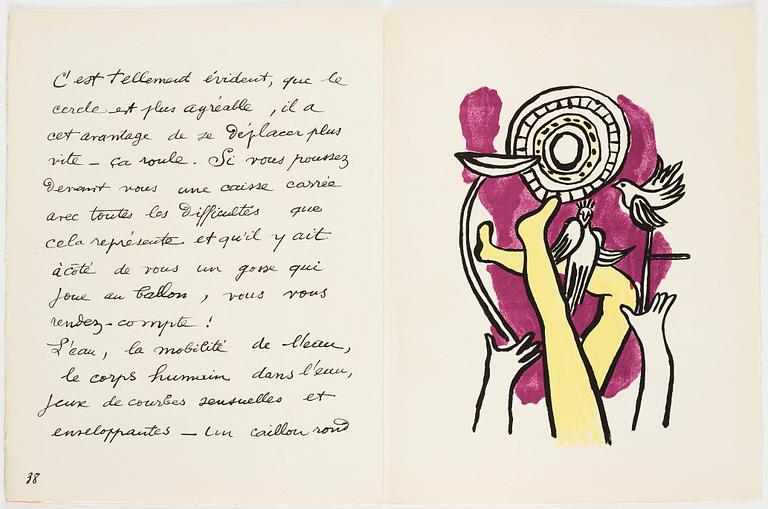 C'est tellement évident, que le
cercle est plus agréable, il a
cet avantage de se déplacer plus
vite - ça roule. Si vous poussez
devenir vous une caisse carrée
avec toutes les difficultés que
cela représente et qu'il y ait
à côté de vous un gosse qui
joue au ballon, vous vous
rendez-compte !
L'eau, la mobilité de l'eau,
le corps humain dans l'eau,
jeux de courbes sensuelles et
enveloppantes - un caillou rond
38